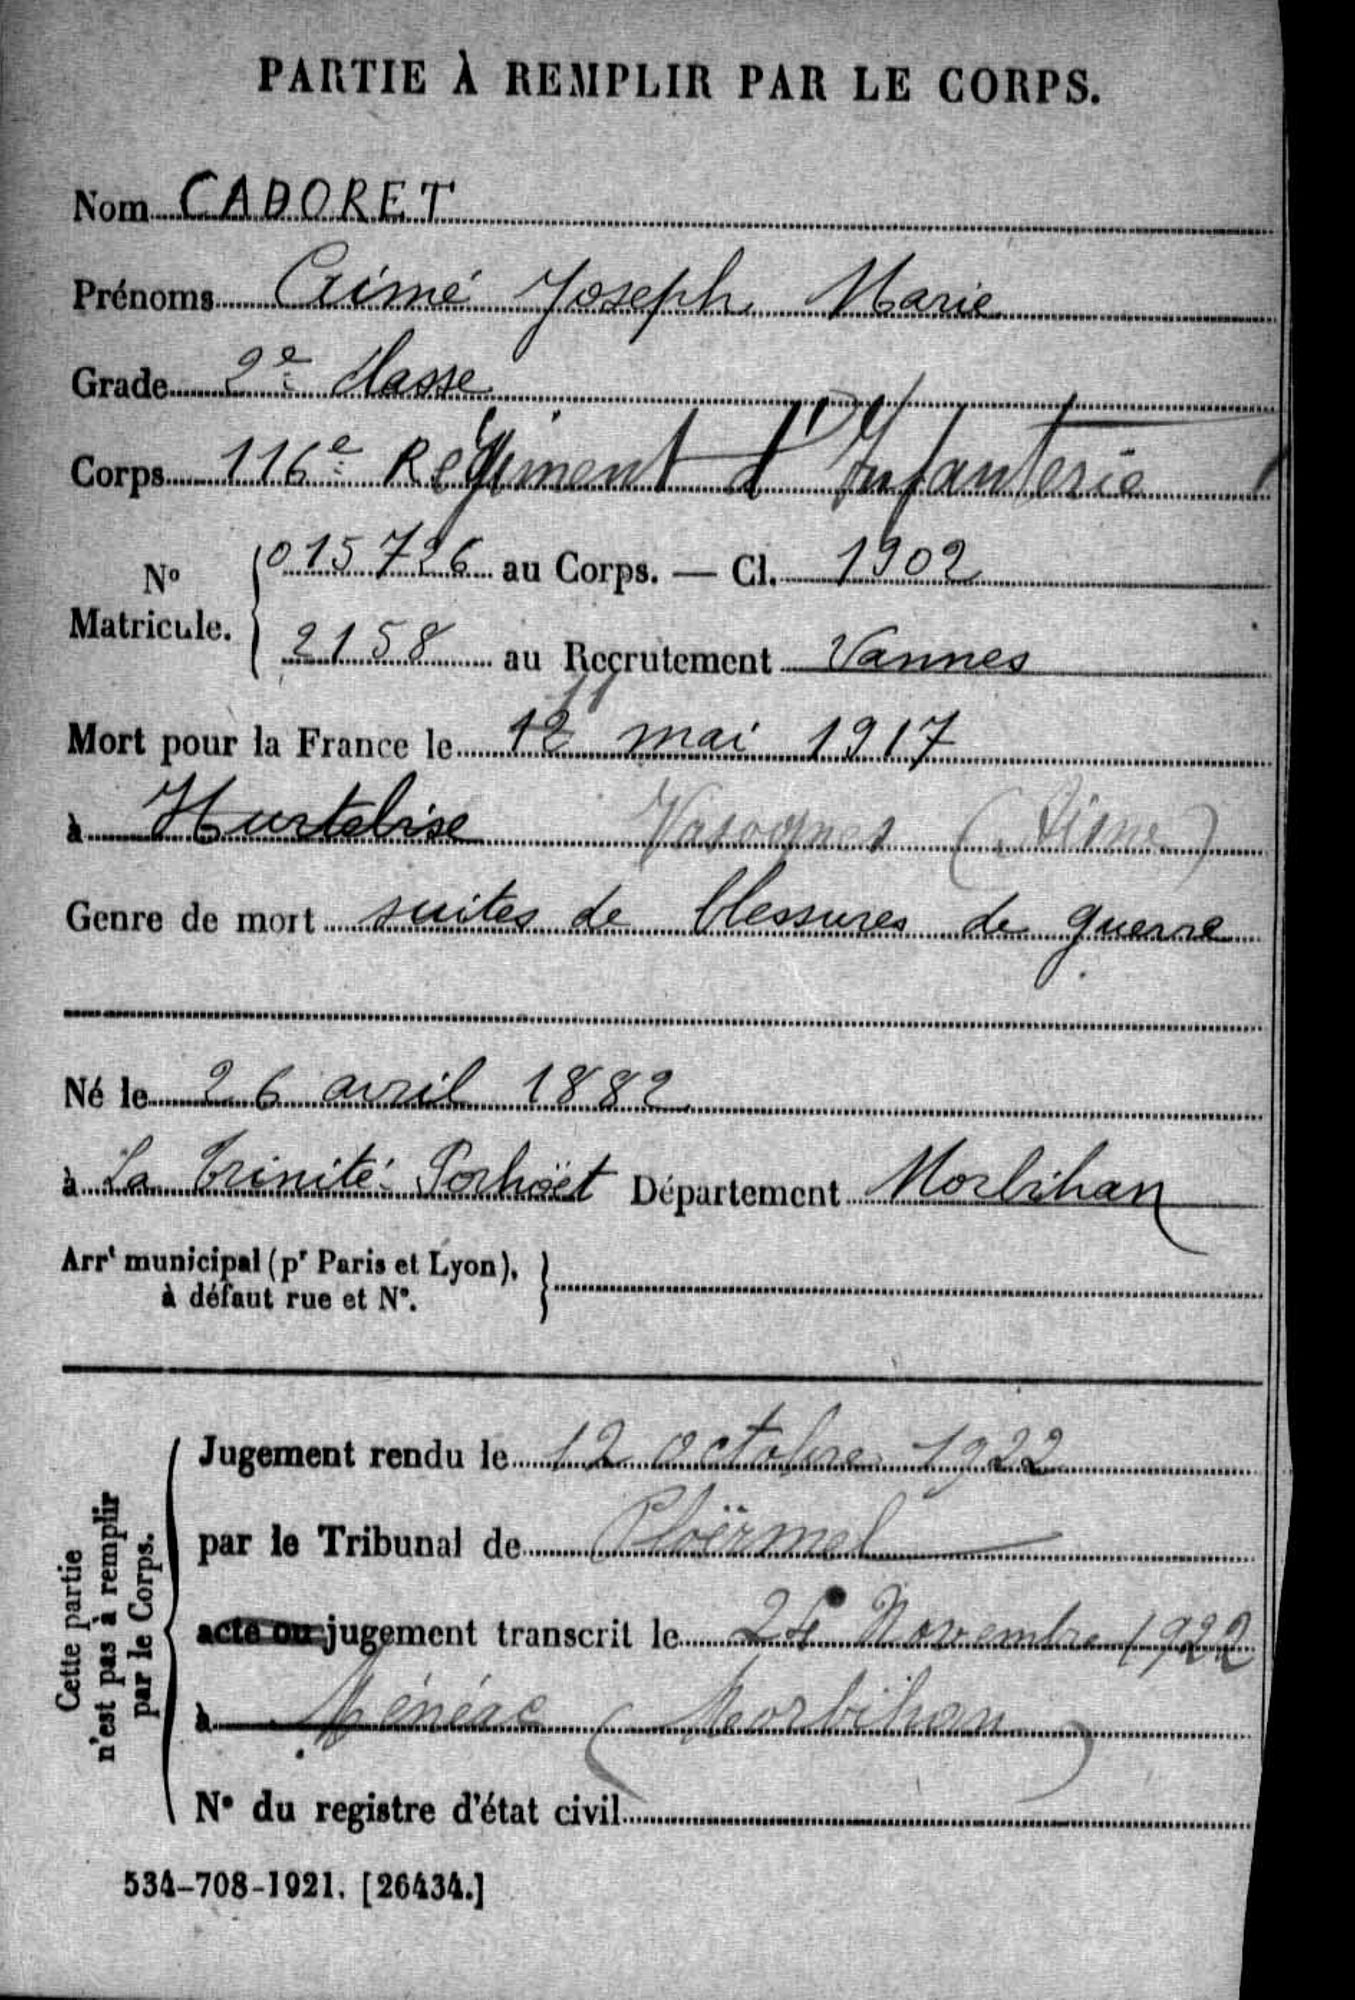 PARTIE À REMPLIR PAR LE CORPS.
Nom CADORET
Prénoms Aimé Joseph Marie
Grade 2e Classe
Corps 116e Régiment d'Infanterie
No Matricule. 015726 au Corps. — Cl. 1902
2158 au Recrutement Vannes
11
Mort pour la France le 12 mai 1917
à Hurtebise Vassognes (Aisne)
Genre de mort suites de blessures de guerre
Né le 26 avril 1882
à La Trinité-Porhoët Département Morbihan
Arrt municipal (pr Paris et Lyon),
à défaut rue et No.
Cette partie n'est pas à remplir par le Corps.
Jugement rendu le 12 octobre 1922
par le Tribunal de Ploërmel
acte ou jugement transcrit le Novembre 1922
à Ménéac (Morbihan)
No du registre d'état civil
534-708-1921. [26434.]